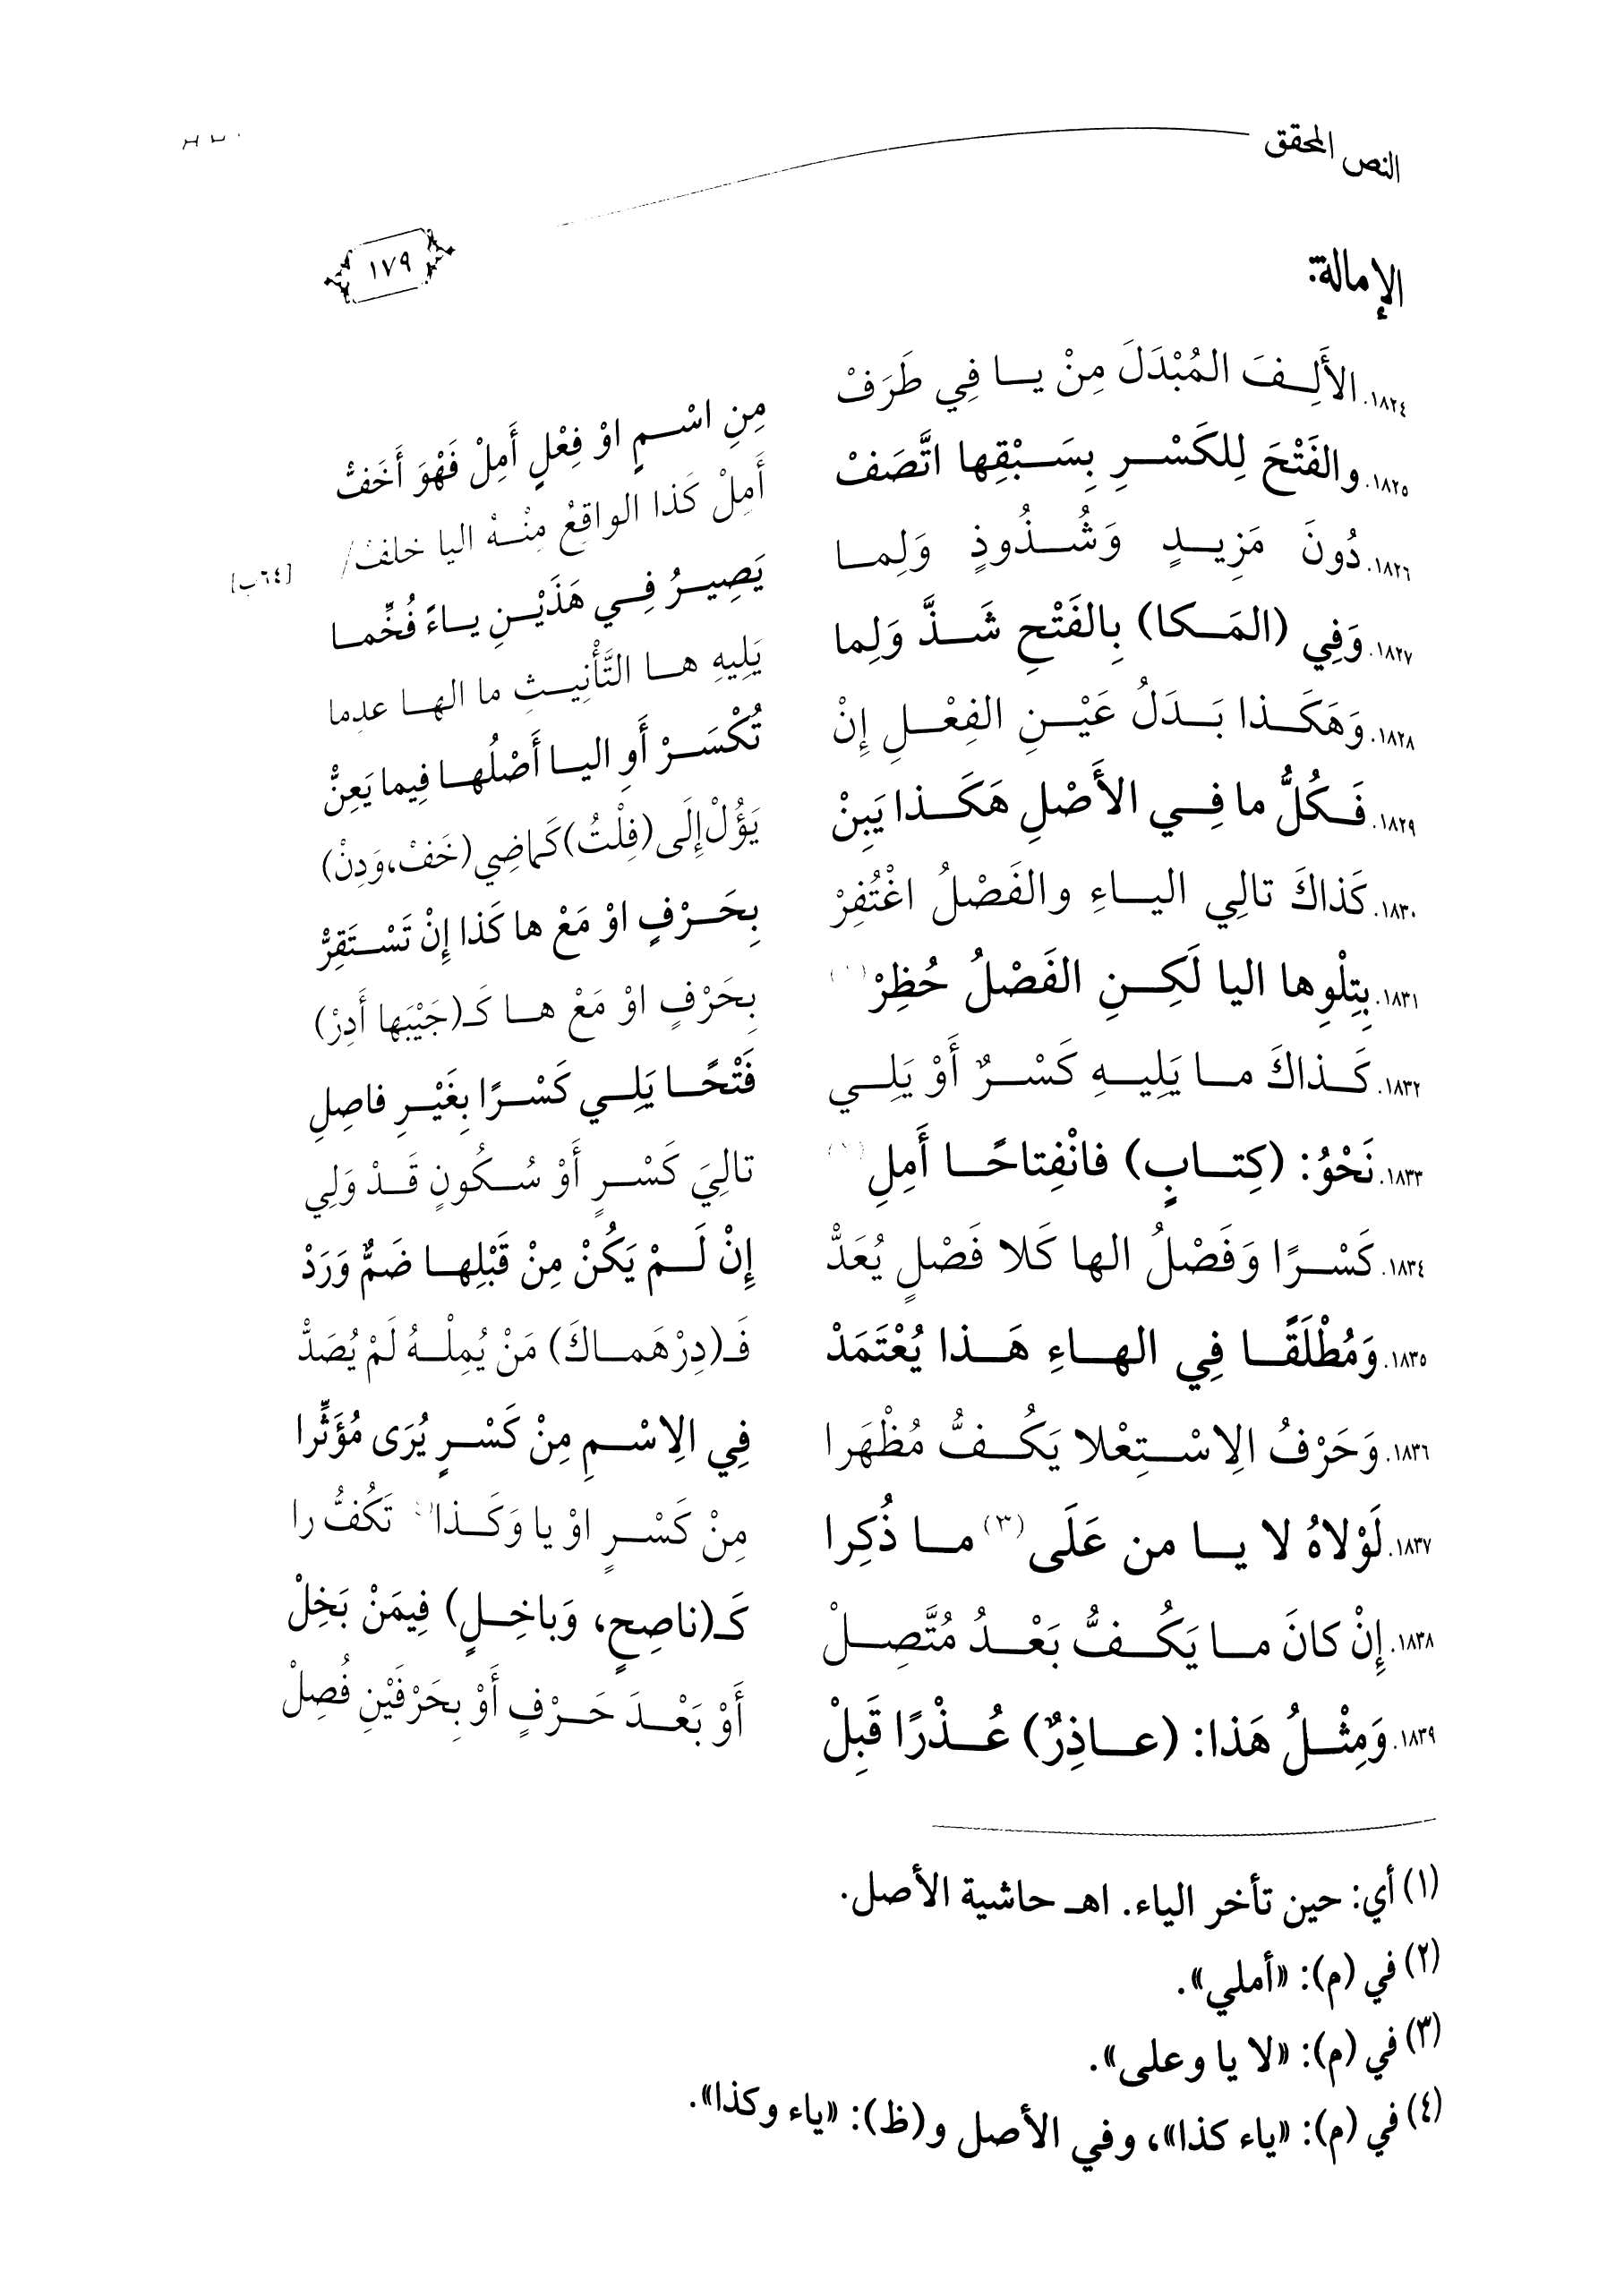 النص المحقق
١٧٩
الإمالة:
١٨٢٤. الأَلِفَ المُبْدَلَ مِنْ يا فِي طَرَفْ مِنِ اسْمٍ اوْ فِعْلٍ أَمِلْ فَهْوَ أَخَفّْ
١٨٢٥. والفَتْحَ لِلكَسْرِ بِسَبْقِها اتَّصَفْ أَمِلْ كَذا الواقِعُ مِنْهُ اليا خلفْ/ [٦٤ب]
١٨٢٦. دُونَ مَزِيدٍ وَشُذُوذٍ وَلِما يَصِيرُ فِي هَذَيْنِ ياءً فُخِّما
١٨٢٧. وَفِي (المَكا) بِالفَتْحِ شَذَّ وَلِما يَلِيهِ ها التَّأْنِيثِ ما الها عدِما
١٨٢٨. وَهَكَذا بَدَلُ عَيْنِ الفِعْلِ إِنْ تُكْسَرْ أَوِ اليا أَصْلُها فِيما يَعِنّْ
١٨٢٩. فَكُلُّ ما فِي الأَصْلِ هَكَذا يَبِنْ يَؤُلْ إِلَى (فِلْتُ) كَماضِي (خَفْ، وَدِنْ)
١٨٣٠. كَذاكَ تالِي الياءِ والفَصْلُ اغْتُفِرْ بِحَرْفٍ اوْ مَعْ ها كَذا إِنْ تَسْتَقِرّْ
١٨٣١. بِتِلْوِها اليا لَكِنِ الفَصْلُ حُظِرْ(١) بِحَرْفٍ اوْ مَعْ ها كَـ(جَيْبَها أَدِرْ)
١٨٣٢. كَذاكَ ما يَلِيهِ كَسْرٌ أَوْ يَلِي فَتْحًا يَلِي كَسْرًا بِغَيْرِ فاصِلِ
١٨٣٣. نَحْوُ: (كِتابٍ) فانْفِتاحًا أَمِلِ(٢) تالِيَ كَسْرٍ أَوْ سُكُونٍ قَدْ وَلِي
١٨٣٤. كَسْرًا وَفَصْلُ الها كَلا فَصْلٍ يُعَدّْ إِنْ لَمْ يَكُنْ مِنْ قَبْلِها ضَمٌّ وَرَدْ
١٨٣٥. وَمُطْلَقًا فِي الهاءِ هَذا يُعْتَمَدْ فَـ(دِرْهَماكَ) مَنْ يُمِلْهُ لَمْ يُصَدّْ
١٨٣٦. وَحَرْفُ الِاسْتِعْلا يَكُفُّ مُظْهَرا فِي الِاسْمِ مِنْ كَسْرٍ يُرَى مُؤَثِّرا
١٨٣٧. لَوْلاهُ لا يا من عَلَى(٣) ما ذُكِرا مِنْ كَسْرٍ اوْ يا وَكَذا(٤) تَكُفُّ را
١٨٣٨. إِنْ كانَ ما يَكُفُّ بَعْدُ مُتَّصِلْ كَـ(ناصِحٍ، وَباخِلٍ) فِيمَنْ بَخِلْ
١٨٣٩. وَمِثْلُ هَذا: (عاذِرٌ) عُذْرًا قَبِلْ أَوْ بَعْدَ حَرْفٍ أَوْ بِحَرْفَيْنِ فُصِلْ
(١) أي: حين تأخر الياء. اهـ حاشية الأصل.
(٢) في (م): «أملي».
(٣) في (م): «لا يا وعلى».
(٤) في (م): «ياء كذا»، وفي الأصل و(ظ): «ياء وكذا».